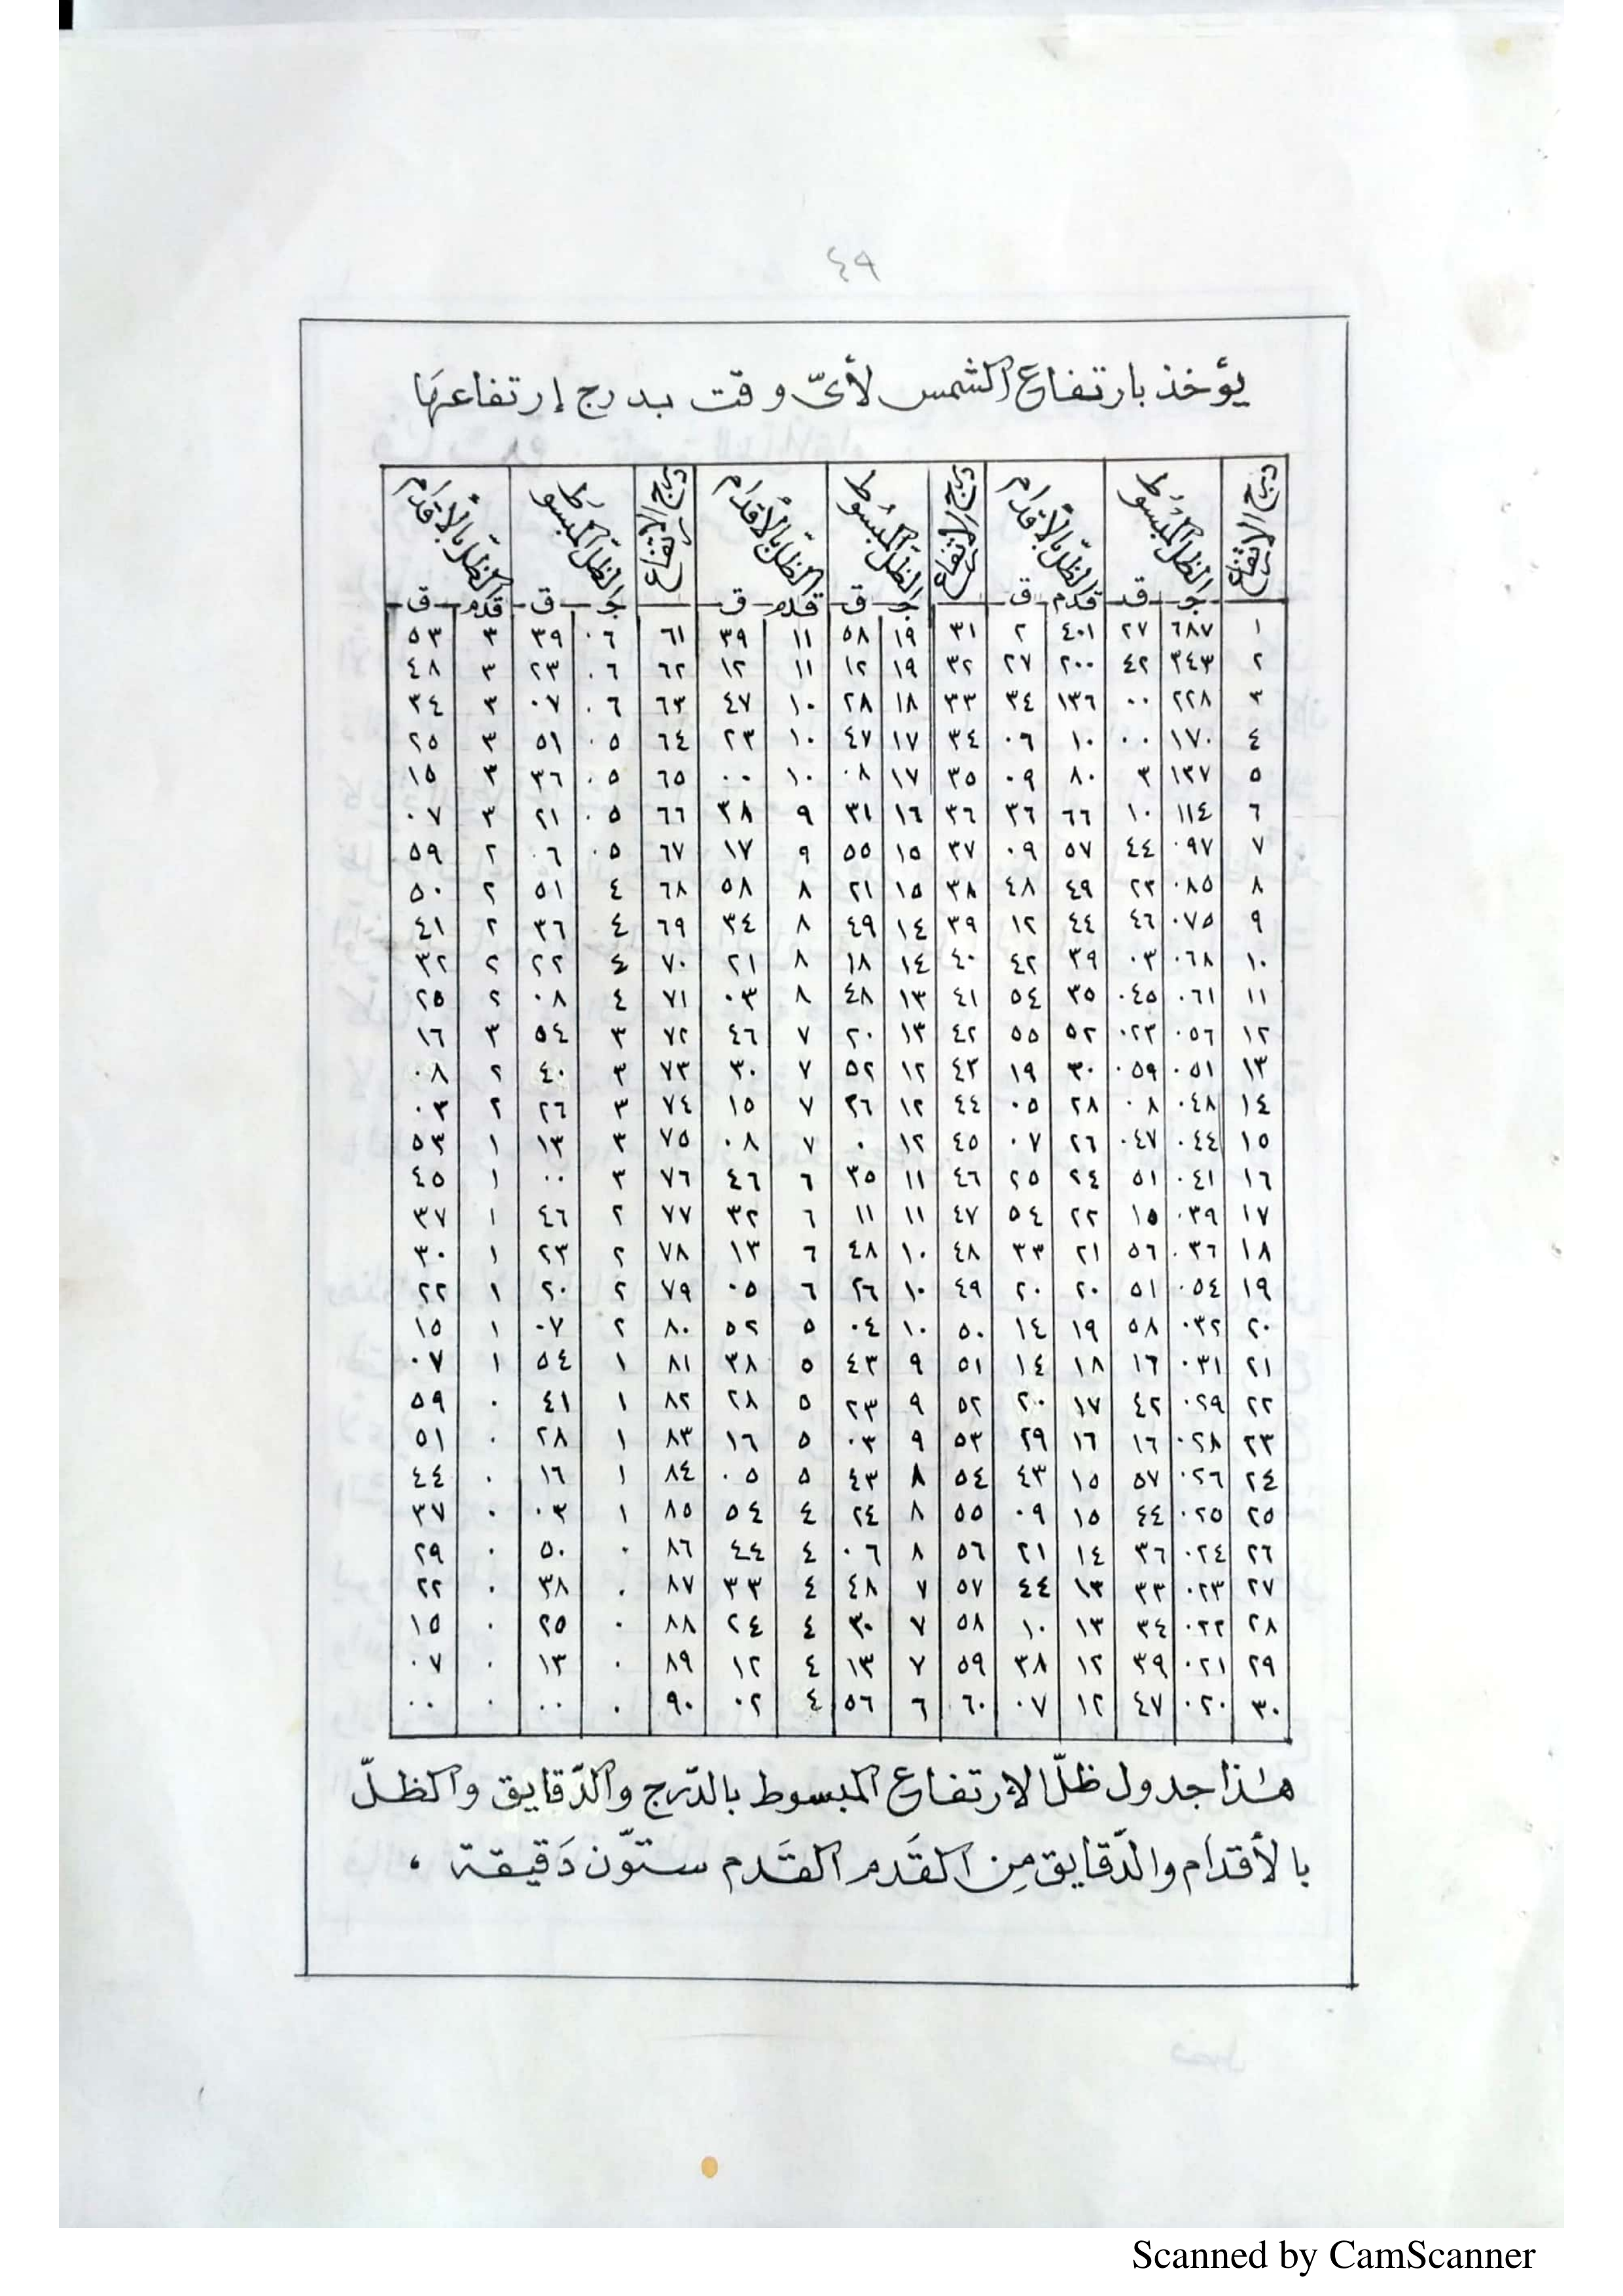 ٤٩
يؤخذ بارتفاع الشمس لأىّ وقت بدرج إرتفاعهَا
درج الارتفاع الظل المبسُوط الظلّ بالأقدَام درج الارتفاع الظلّ المبسُوط الظلّ بالأقدَام درج الارتفاع الظلّ المبسوَط الظلّ بالأقدَام
جـ قد قدم ق جـ ق قدم ق جـ ق قدم ق
١ ٦٨٧ ٢٧ ٤٠١ ٢ ٣١ ١٩ ٥٨ ١١ ٣٩ ٦١ ٠٦ ٣٩ ٣ ٥٣
٢ ٣٤٣ ٤٢ ٢٠٠ ٢٧ ٣٢ ١٩ ١٢ ١١ ١٢ ٦٢ ٠٦ ٢٣ ٣ ٤٨
٣ ٢٢٨ ٠٠ ١٣٦ ٣٤ ٣٣ ١٨ ٢٨ ١٠ ٤٧ ٦٣ ٠٦ ٠٧ ٣ ٣٤
٤ ١٧٠ ٠٠ ١٠ ٠٦ ٣٤ ١٧ ٤٧ ١٠ ٢٣ ٦٤ ٠٥ ٥١ ٣ ٢٥
٥ ١٣٧ ٣ ٨٠ ٠٩ ٣٥ ١٧ ٠٨ ١٠ ٠٠ ٦٥ ٠٥ ٣٦ ٣ ١٥
٦ ١١٤ ١٠ ٦٦ ٣٦ ٣٦ ١٦ ٣١ ٩ ٣٨ ٦٦ ٠٥ ٢١ ٣ ٠٧
٧ ٠٩٧ ٤٤ ٥٧ ٠٩ ٣٧ ١٥ ٥٥ ٩ ١٧ ٦٧ ٠٥ ٠٦ ٢ ٥٩
٨ ٠٨٥ ٢٣ ٤٩ ٤٨ ٣٨ ١٥ ٢١ ٨ ٥٨ ٦٨ ٤ ٥١ ٢ ٥٠
٩ ٠٧٥ ٤٦ ٤٤ ١٢ ٣٩ ١٤ ٤٩ ٨ ٣٤ ٦٩ ٤ ٣٦ ٢ ٤١
١٠ ٠٦٨ ٠٣ ٣٩ ٤٢ ٤٠ ١٤ ١٨ ٨ ٢١ ٧٠ ٤ ٢٢ ٢ ٣٢
١١ ٠٦١ ٠٤٥ ٣٥ ٥٤ ٤١ ١٣ ٤٨ ٨ ٠٣ ٧١ ٤ ٠٨ ٢ ٢٥
١٢ ٠٥٦ ٠٢٣ ٥٢ ٥٥ ٤٢ ١٣ ٢٠ ٧ ٤٦ ٧٢ ٣ ٥٤ ٣ ١٦
١٣ ٠٥١ ٠٥٩ ٣٠ ١٩ ٤٣ ١٢ ٥٢ ٧ ٣٠ ٧٣ ٣ ٤٠ ٢ ٠٨
١٤ ٠٤٨ ٠٨ ٢٨ ٠٥ ٤٤ ١٢ ٢٦ ٧ ١٥ ٧٤ ٣ ٢٦ ٢ ٠٣
١٥ ٠٤٤ ٠٤٧ ٢٦ ٠٧ ٤٥ ١٢ ٠ ٧ ٠٨ ٧٥ ٣ ١٣ ١ ٥٣
١٦ ٠٤١ ٥١ ٢٤ ٢٥ ٤٦ ١١ ٣٥ ٦ ٤٦ ٧٦ ٣ ٠٠ ١ ٤٥
١٧ ٠٣٩ ١٥ ٢٢ ٥٤ ٤٧ ١١ ١١ ٦ ٣٢ ٧٧ ٢ ٤٦ ١ ٣٧
١٨ ٠٣٦ ٥٦ ٢١ ٣٣ ٤٨ ١٠ ٤٨ ٦ ١٣ ٧٨ ٢ ٢٣ ١ ٣٠
١٩ ٠٥٤ ٥١ ٢٠ ٢٠ ٤٩ ١٠ ٢٦ ٦ ٠٥ ٧٩ ٢ ٢٠ ١ ٢٢
٢٠ ٠٣٢ ٥٨ ١٩ ١٤ ٥٠ ١٠ ٠٤ ٥ ٥٢ ٨٠ ٢ ٠٧ ١ ١٥
٢١ ٠٣١ ١٦ ١٨ ١٤ ٥١ ٩ ٤٣ ٥ ٣٨ ٨١ ١ ٥٤ ١ ٠٧
٢٢ ٠٢٩ ٤٢ ١٧ ٢٠ ٥٢ ٩ ٢٣ ٥ ٢٨ ٨٢ ١ ٤١ ٠ ٥٩
٢٣ ٠٢٨ ١٦ ١٦ ٢٩ ٥٣ ٩ ٠٣ ٥ ١٦ ٨٣ ١ ٢٨ ٠ ٥١
٢٤ ٠٢٦ ٥٧ ١٥ ٤٣ ٥٤ ٨ ٤٣ ٥ ٠٥ ٨٤ ١ ١٦ ٠ ٤٤
٢٥ ٠٢٥ ٤٤ ١٥ ٠٩ ٥٥ ٨ ٢٤ ٤ ٥٤ ٨٥ ١ ٠٣ ٠ ٣٧
٢٦ ٠٢٤ ٣٦ ١٤ ٢١ ٥٦ ٨ ٠٦ ٤ ٤٤ ٨٦ ٠ ٥٠ ٠ ٢٩
٢٧ ٠٢٣ ٣٣ ١٣ ٤٤ ٥٧ ٧ ٤٨ ٤ ٣٣ ٨٧ ٠ ٣٨ ٠ ٢٢
٢٨ ٠٢٢ ٣٤ ١٣ ١٠ ٥٨ ٧ ٣٠ ٤ ٢٤ ٨٨ ٠ ٢٥ ٠ ١٥
٢٩ ٠٢١ ٣٩ ١٢ ٣٨ ٥٩ ٧ ١٣ ٤ ١٢ ٨٩ ٠ ١٣ ٠ ٠٧
٣٠ ٠٢٠ ٤٧ ١٢ ٠٧ ٦٠ ٦ ٥٦ ٤ ٠٢ ٩٠ ٠ ٠٠ ٠ ٠٠
هٰذا جدول ظلّ الإرتفاع المبسوط بالدّرج والدّقايق والظلّ
بالأقدَام والدّقايق مِن القَدم القَدم ستوّن دَقيقة ٠
Scanned by CamScanner